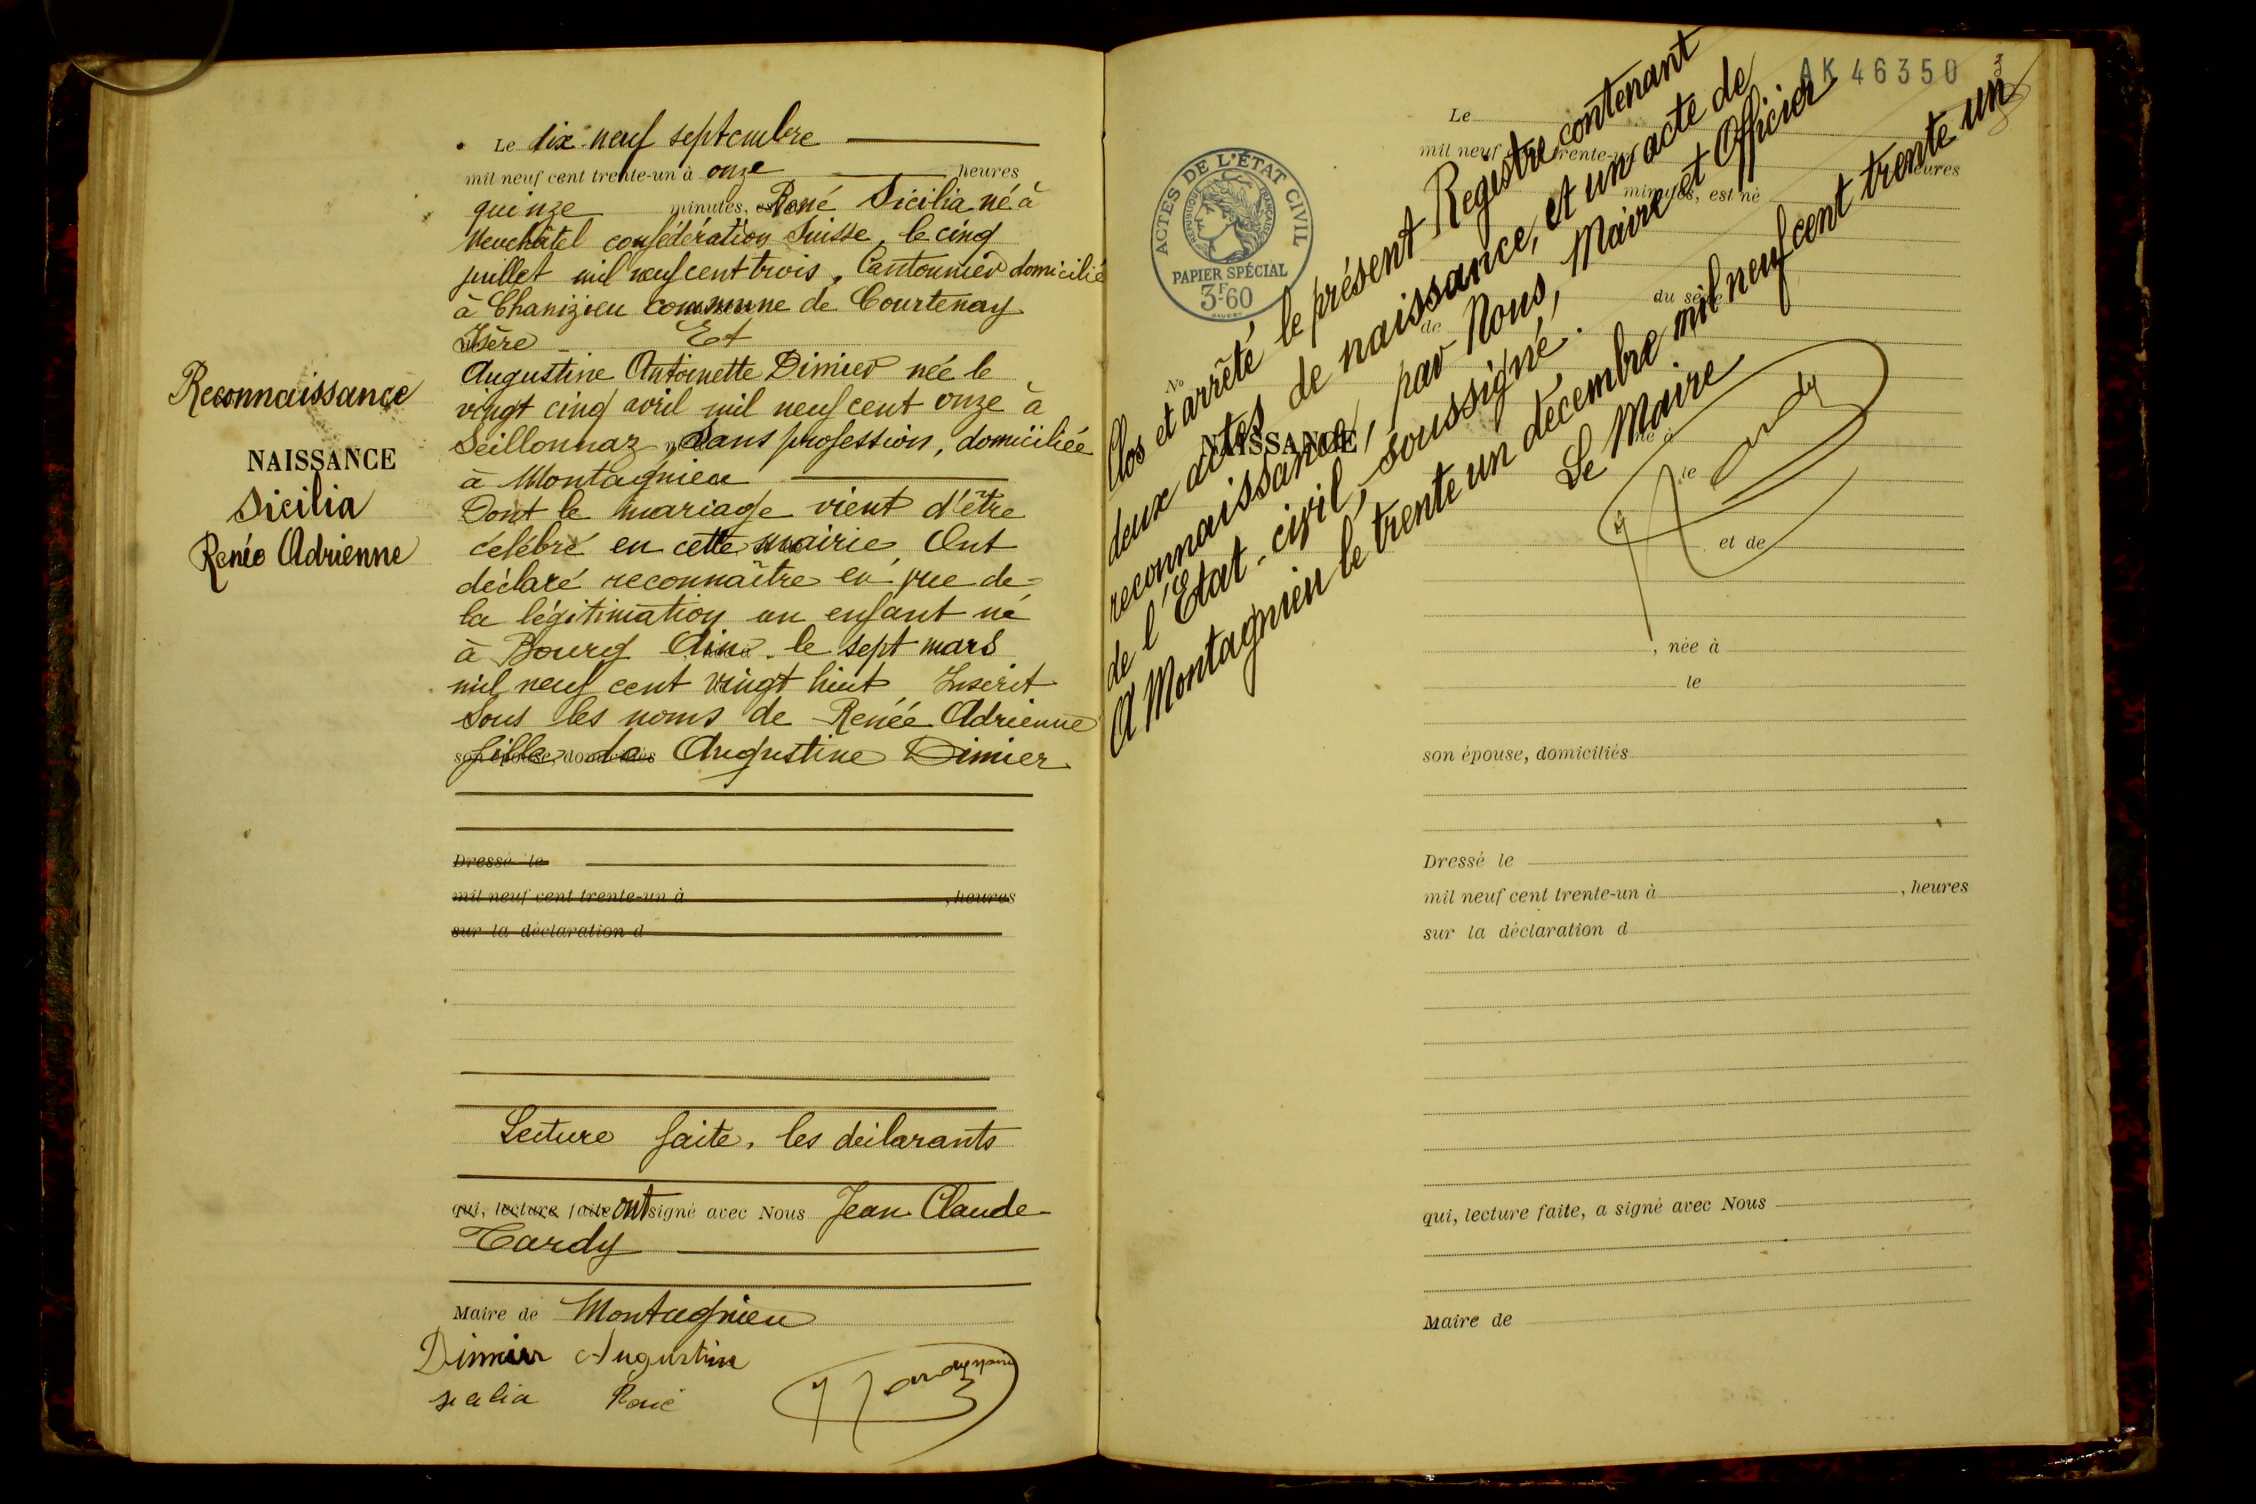 Reconnaissance
NAISSANCE
Sicilia
Renée Adrienne
Le dix-neuf septembre
mil neuf cent trente-un à onze heures
quinze minutes, René Sicilia né à
Neuchâtel confédération Suisse, le cinq
juillet mil neuf cent trois, Cantonnier domicilié
à Chanizieu commune de Courtenay
Isère Et
Augustine Antoinette Dimier née le
vingt cinq avril mil neuf cent onze à
Seillonnaz, Sans profession, domiciliée
à Montagnieu
Dont le mariage vient d'être
célébré en cette mairie Ont
déclaré reconnaître en vue de
la légitimation un enfant né
à Bourg Ain. le sept mars
mil neuf cent vingt huit Inscrit
Sous les noms de Renée Adrienne
son épouse, domiciliés fille de Augustine Dimier
Dressé le
mil neuf cent trente-un à , heures
sur la déclaration d
Lecture faite, les déclarants
qui, lecture faite ont signé avec Nous Jean Claude
Tardy
Maire de Montagnieu
Dimier Augustine
sicilia René
AK 46350
3
ACTES DE L'ÉTAT CIVIL
RÉPUBLIQUE FRANÇAISE
PAPIER SPÉCIAL
3F60
Clos et arrêté le présent Registre contenant
deux actes de naissance, et un acte de
reconnaissance, par Nous, Maire et Officier
de l'Etat-civil, soussigné.
A Montagnieu le trente un décembre mil neuf cent trente un
Le Maire
Tardy
No
NAISSANCE
Le
mil neuf cent trente-un heures
minutes, est né
du sexe
de
né à
le
et de
, née à
le
son épouse, domiciliés
Dressé le
mil neuf cent trente-un à , heures
sur la déclaration d
qui, lecture faite, a signé avec Nous
Maire de